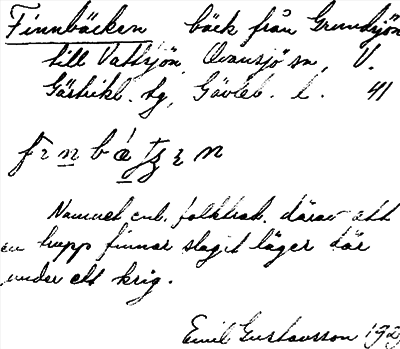 Finnbäcken bäck från Grundsjön
till Vattsjön, Ovansjö sn, V.
Gästrikl. tg, Gävleb. l. 41
Namnet enl. folktrad. därav att
en hupp finnar slagit läger där
under ett krig.
Emil Gustavsson 192